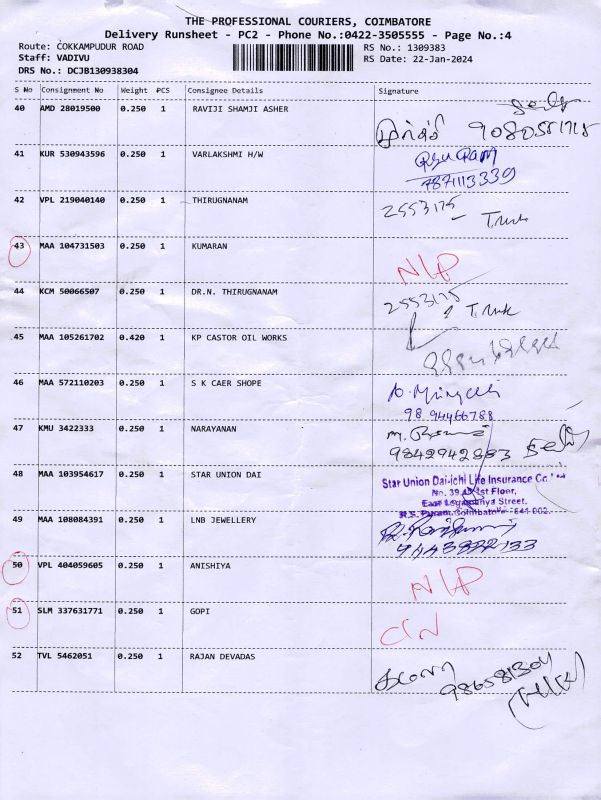 THE PROFESSIONAL COURIERS, COIMBATORE
Delivery Runsheet - PC2 - Phone No.:0422-3505555 - Page No.:4
Route: COKKAMPUDUR ROAD RS No.: 1309383
Staff: VADIVU RS Date: 22-Jan-2024
DRS No.: DCJB130938304
S No Consignment No Weight PCS Consignee Details Signature
40 AMD 28019500 0.250 1 RAVIJI SHAMJI ASHER
41 KUR 530943596 0.250 1 VARLAKSHMI H/W
7871113339
42 VPL 219040140 0.250 1 THIRUGNANAM 2553175
43 MAA 104731503 0.250 1 KUMARAN
NLP
44 KCM 50066507 0.250 1 DR.N. THIRUGNANAM 2553175
45 MAA 105261702 0.420 1 KP CASTOR OIL WORKS
46 MAA 572110203 0.250 1 S K CAER SHOPE
98 94466788
47 KMU 3422333 0.250 1 NARAYANAN
9842942883
48 MAA 103954617 0.250 1 STAR UNION DAI Star Union Dai-ichi Life Insurance Co
1st Floor,
Street,
49 MAA 108084391 0.250 1 LNB JEWELLERY
50 VPL 404059605 0.250 1 ANISHIYA
NLP
51 SLM 337631771 0.250 1 GOPI
CIN
52 TVL 5462051 0.250 1 RAJAN DEVADAS
986581304